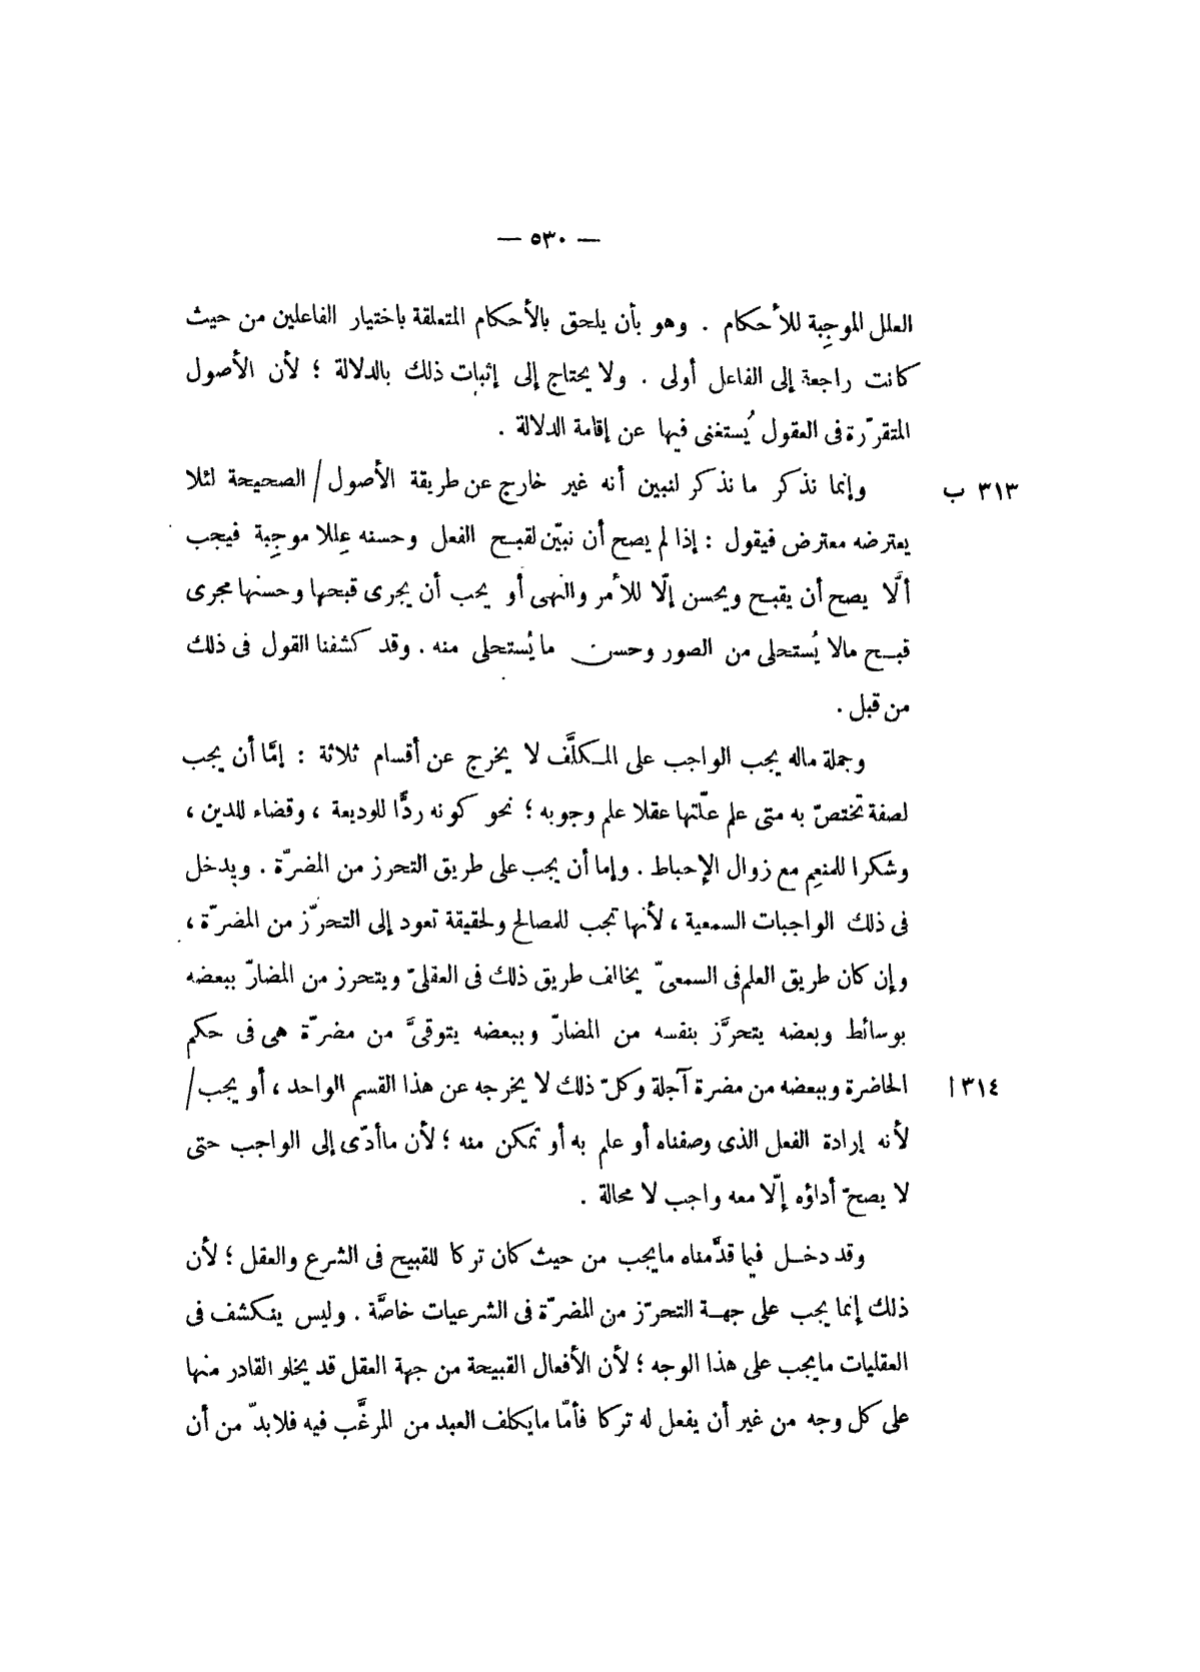 — ٥٣٠ —
العلل الموجِبة للأحكام . وهو بأن يلحق بالأحكام المتعلقة باختيار الفاعلين من حيث
كانت راجعة إلى الفاعل أولى . ولا يحتاج إلى إثبات ذلك بالدلالة ؛ لأن الأصول
المتقرّرة فى العقول يُستغنى فيها عن إقامة الدلالة .
٣١٣ ب وإنما نذكر ما نذكر لنبين أنه غير خارج عن طريقة الأصول / الصحيحة لئلا
يعترضه معترض فيقول : إذا لم يصح أن نبيّن لقبح الفعل وحسنه عِللا موجِبة فيجب
ألّا يصح أن يقبح ويحسن إلّا للأمر والنهى أو يحب أن يجرى قبحها وحسنها مجرى
قبح مالا يُستحلى من الصور وحسن ما يُستحلى منه . وقد كشفنا القول فى ذلك
من قبل .
وجملة ماله يجب الواجب على المكلَّف لا يخرج عن أقسام ثلاثة : إمَّا أن يجب
لصفة تختصّ به متى علم علّتها عقلا علم وجوبه ؛ نحو كونه ردًّا للوديعة ، وقضاء للدين ،
وشكرا للمنعِم مع زوال الإحباط . وإما أن يجب على طريق التحرز من المضرّة . ويدخل
فى ذلك الواجبات السمعية ، لأنها تجب للمصالح ولحقيقة تعود إلى التحرّز من المضرّة ،
وإن كان طريق العلم فى السمعىّ يخالف طريق ذلك فى العقلىّ ويتحرز من المضارّ ببعضه
بوسائط وبعضه يتحرَّز بنفسه من المضارّ وببعضه يتوقىَّ من مضرّة هى فى حكم
٣١٤ ا الحاضرة وببعضه من مضرة آجلة وكلّ ذلك لا يخرجه عن هذا القسم الواحد ، أو يجب /
لأنه إرادة الفعل الذى وصفناه أو علم به أو تمكن منه ؛ لأن ماأدّى إلى الواجب حتى
لا يصحّ أداؤه إلّا معه واجب لا محالة .
وقد دخل فيما قدَّمناه مايجب من حيث كان تركا للقبيح فى الشرع والعقل ؛ لأن
ذلك إنما يجب على جهة التحرّز من المضرّة فى الشرعيات خاصَّة . وليس ينكشف فى
العقليات مايجب على هذا الوجه ؛ لأن الأفعال القبيحة من جهة العقل قد يخلو القادر منها
على كل وجه من غير أن يفعل له تركا فأمّا مايكلف العبد من المرغَّب فيه فلابدّ من أن